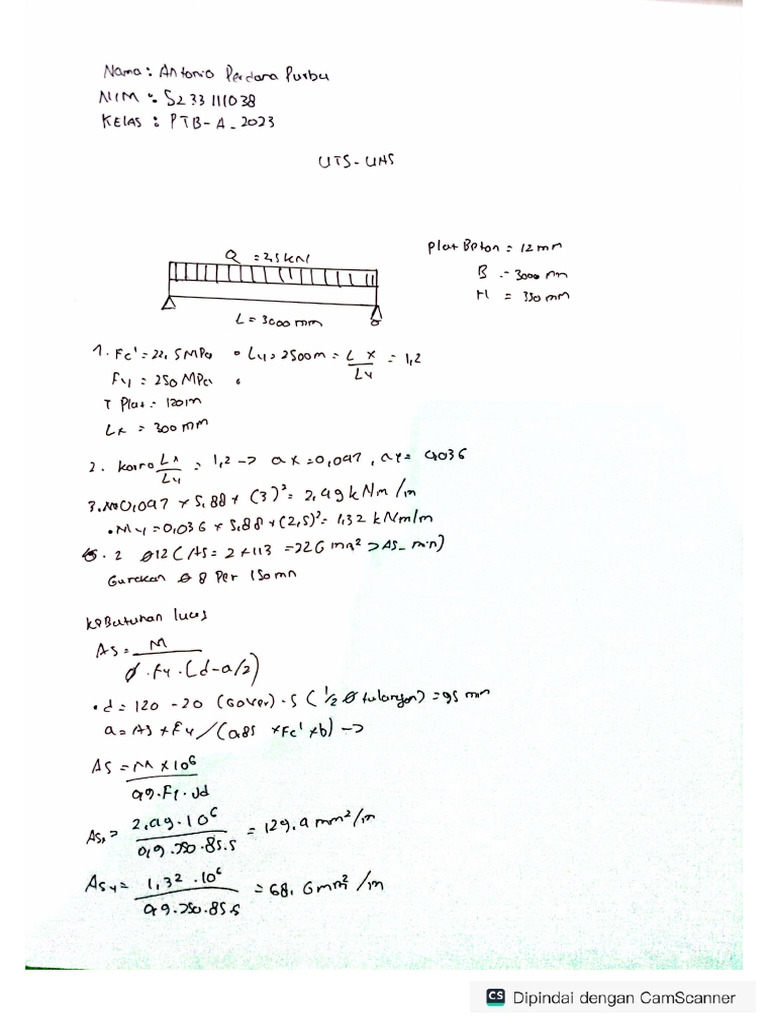 Nama : Antonio Perdana Purba
NIM : 5233111038
KELAS : PTB-A-2023
UTS-UAS
Q = 2,5 kN/
L = 3000 mm
Plat Beton = 12 mm
B = 3000 mm
H = 350 mm
1. Fc' = 22,5 MPa • Ly = 2500 m = L x / Ly = 1,2
Fy = 250 MPa •
T Plat = 120 m
Lx = 300 mm
2. Lx / Ly = 1,2 -> ax = 0,047, ay = 0,036
3. 0,047 x 5,88 x (3)² = 2,49 kNm/m
• My = 0,036 x 5,88 x (2,5)² = 1,32 kNm/m
2 Ø12 (As = 2 x 113 = 226 mm² > AS_min)
Gunakan Ø 8 Per 150 mm
Kebutuhan luas
As = M / Ø . Fy . (d-a/2)
• d = 120 - 20 (Cover) - 5 (1/2 Ø tulangan) = 95 mm
a = As x Fy / (0,85 x Fc' x b) ->
As = M x 10⁶ / 0,9 . Fy . Jd
Asx = 2,49 . 10⁶ / 0,9 . 250 . 85.5 = 129,4 mm²/m
Asy = 1,32 . 10⁶ / 0,9 . 250 . 85.5 = 68,6 mm²/m
CS Dipindai dengan CamScanner